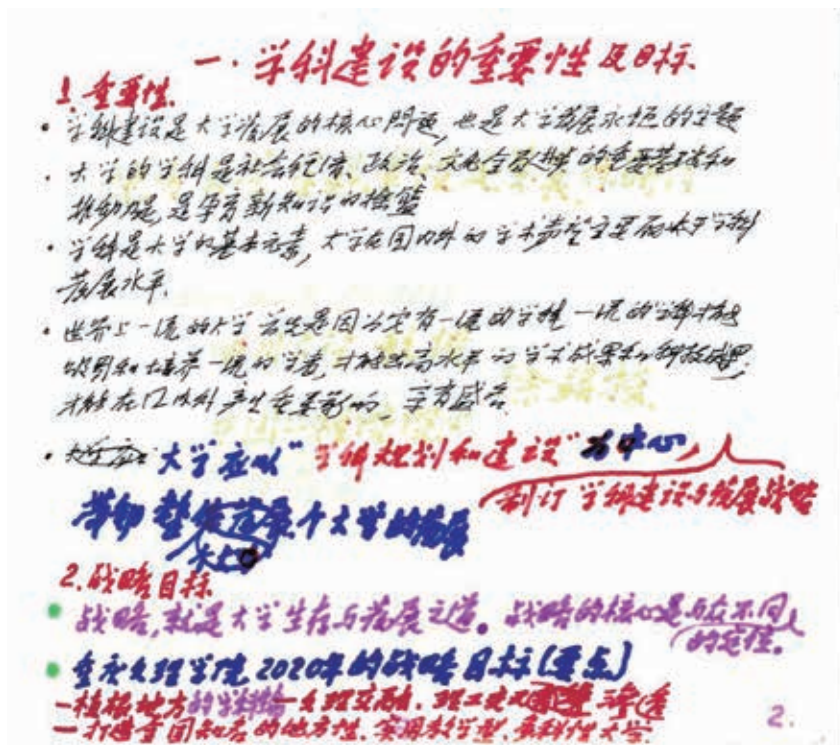 一.学科建设的重要性及目标.
1.重要性.
• 学科建设是大学发展的核心问题,也是大学发展永恒的主题
• 大学的学科是社会经济、政治、文化全面进步的重要基础和
推动力是,是孕育新知识的摇篮
• 学科是大学的基本元素,大学在国内外的学术声望主要取决于学科
发展水平.
• 世界上一流的大学首先是因为它有一流的学科 一流的学科才能
吸引和培养一流的学者,才能出高水平的学术成果和科技成果,
才能在国内外产生重要影响,享有盛名.
• 大学应以"学科规划和建设"为中心,
制订学科建设与发展战略
带动整个大学的发展
2.战略目标
• 战略,就是大学生存与发展之道。战略的核心是与众不同
的定位。
• 重庆文理学院2020年的战略目标(要点)
一植根地方的 文理交融、理工 渗透
一打造全国知名的地方性、实用教学型、多科性大学.
2.